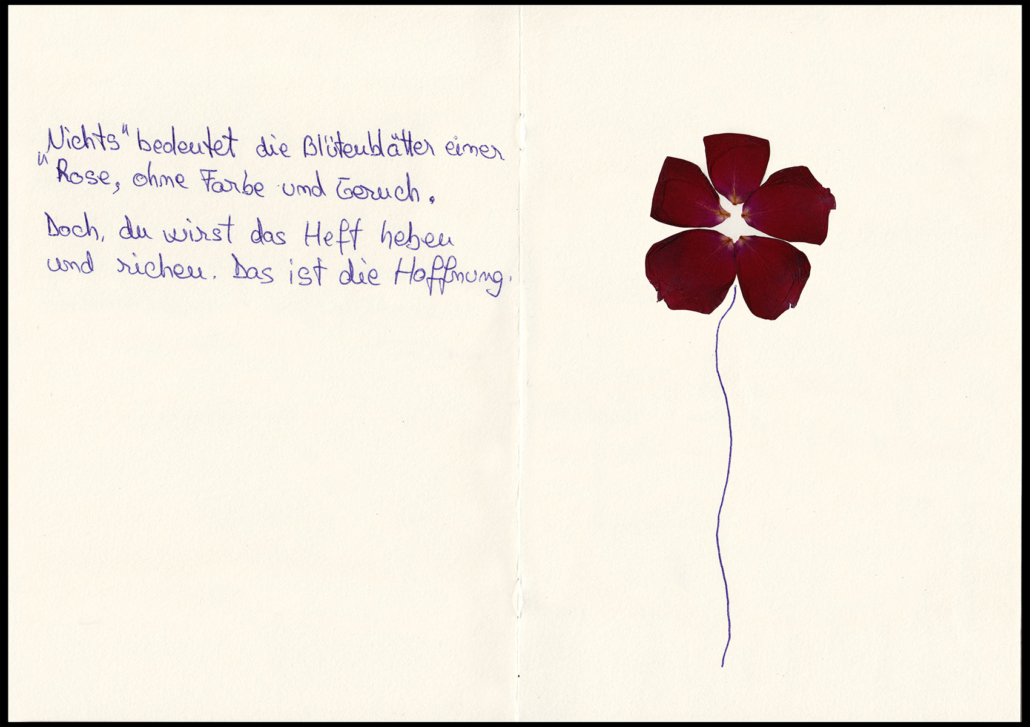 „Nichts" bedeutet die Blütenblätter einer
Rose, ohne Farbe und Geruch.
Doch, du wirst das Heft heben
und richen. Das ist die Hoffnung.